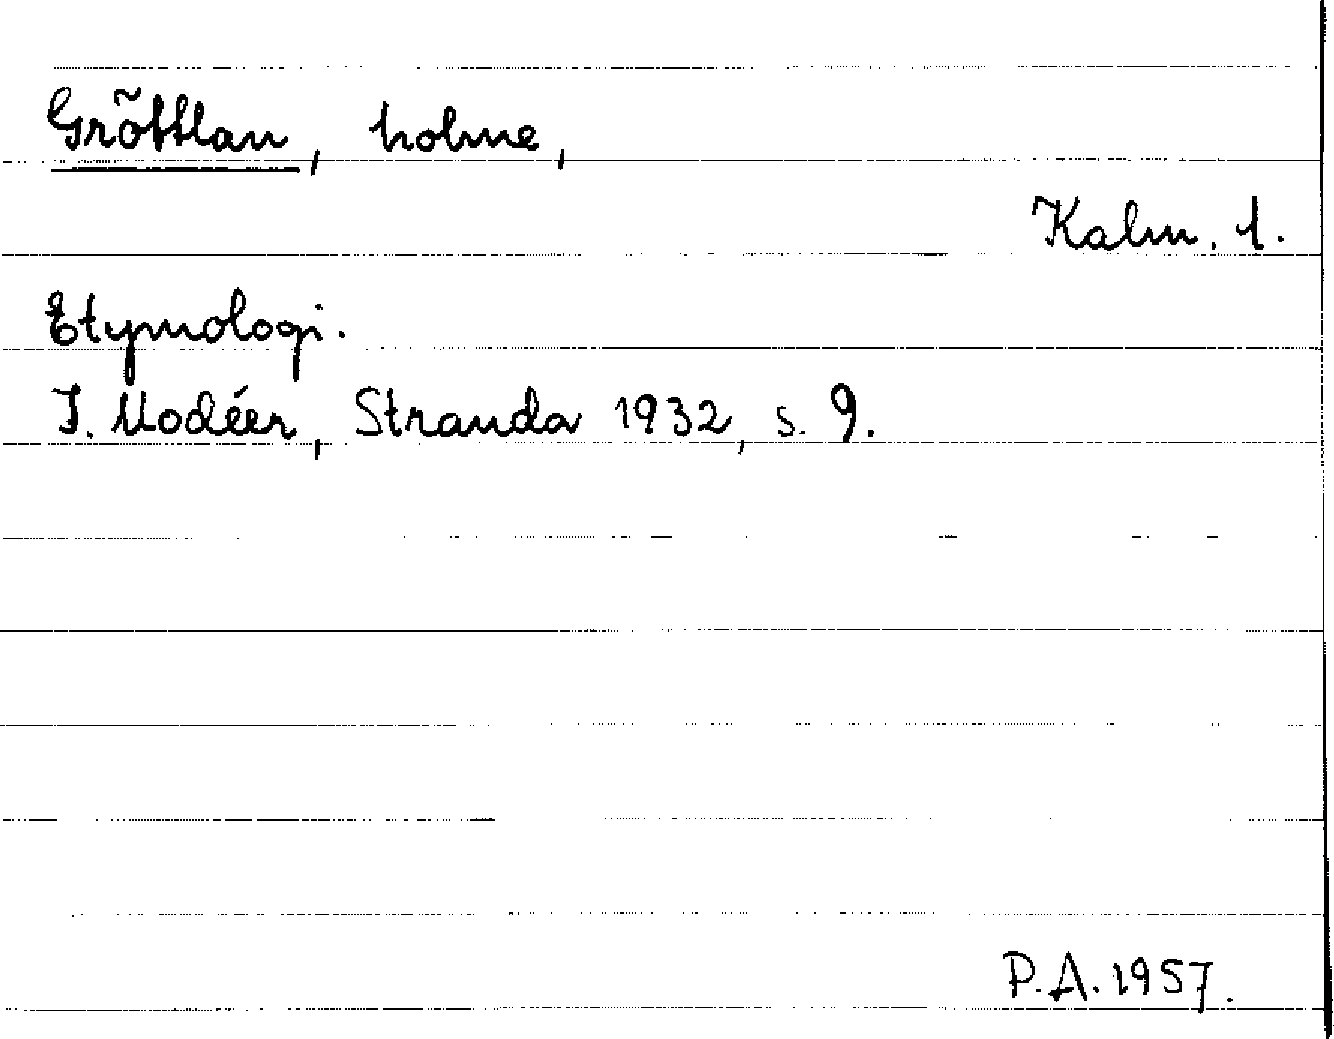 Gröttlan, holme,
Kalm. l.
Etymologi.
I. Modéer, Stranda 1932, s. 9.
P.A. 1957.